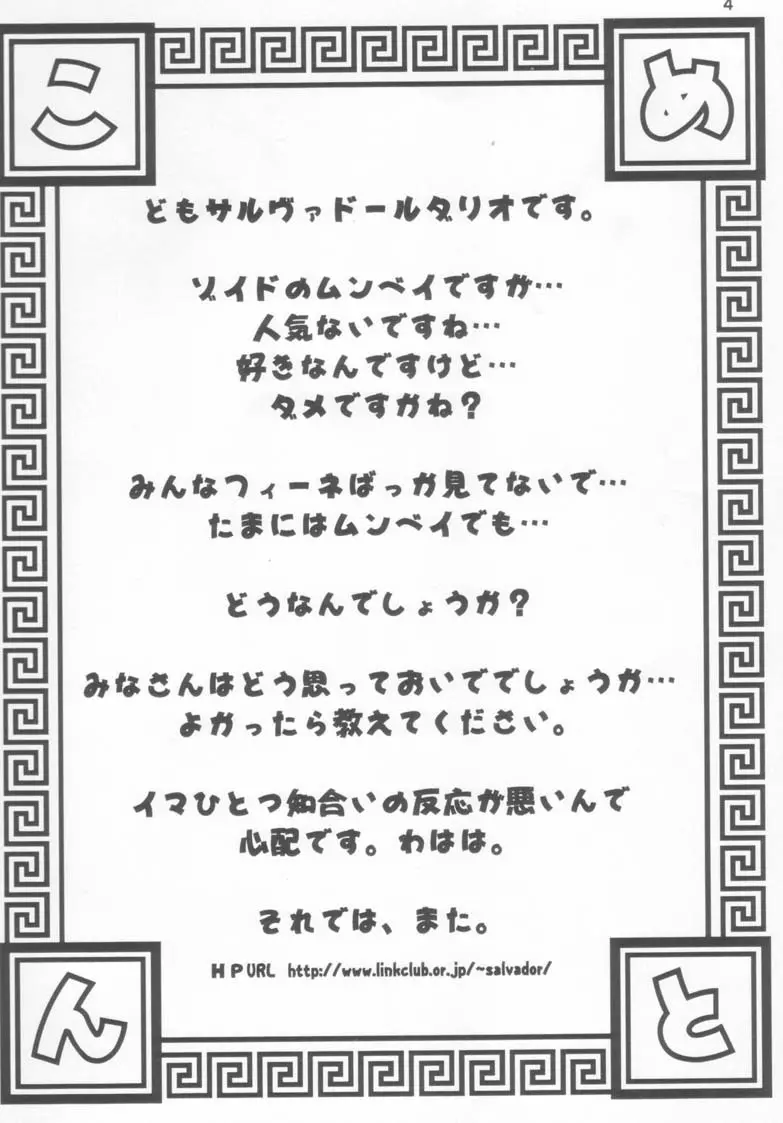 4
こ
め
どもサルヴァドールダリオです。
ゾイドのムンベイですが…
人気ないですね…
好きなんですけど…
ダメですかね？
みんなフィーネばっか見てないで…
たまにはムンベイでも…
どうなんでしょうか？
みなさんはどう思っておいででしょうか…
よかったら教えてください。
イマひとつ知合いの反応が悪いんで
心配です。わはは。
それでは、また。
HP URL http://www.linkclub.or.jp/~salvador/
ん
と